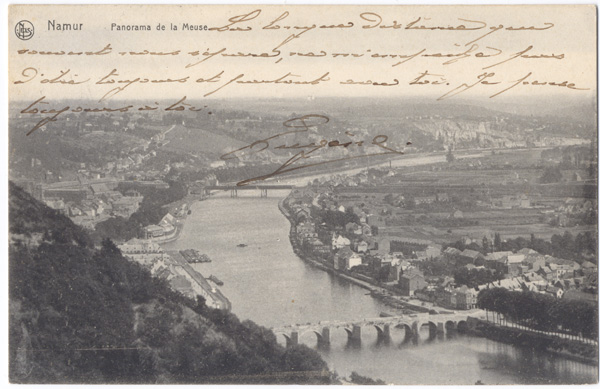 Nels
Namur Panorama de la Meuse
La longue distance qui
souvent nous sépare, ne m'empêche pas
d'être toujours et partout avec toi. Je pense
toujours à toi.
Eugène